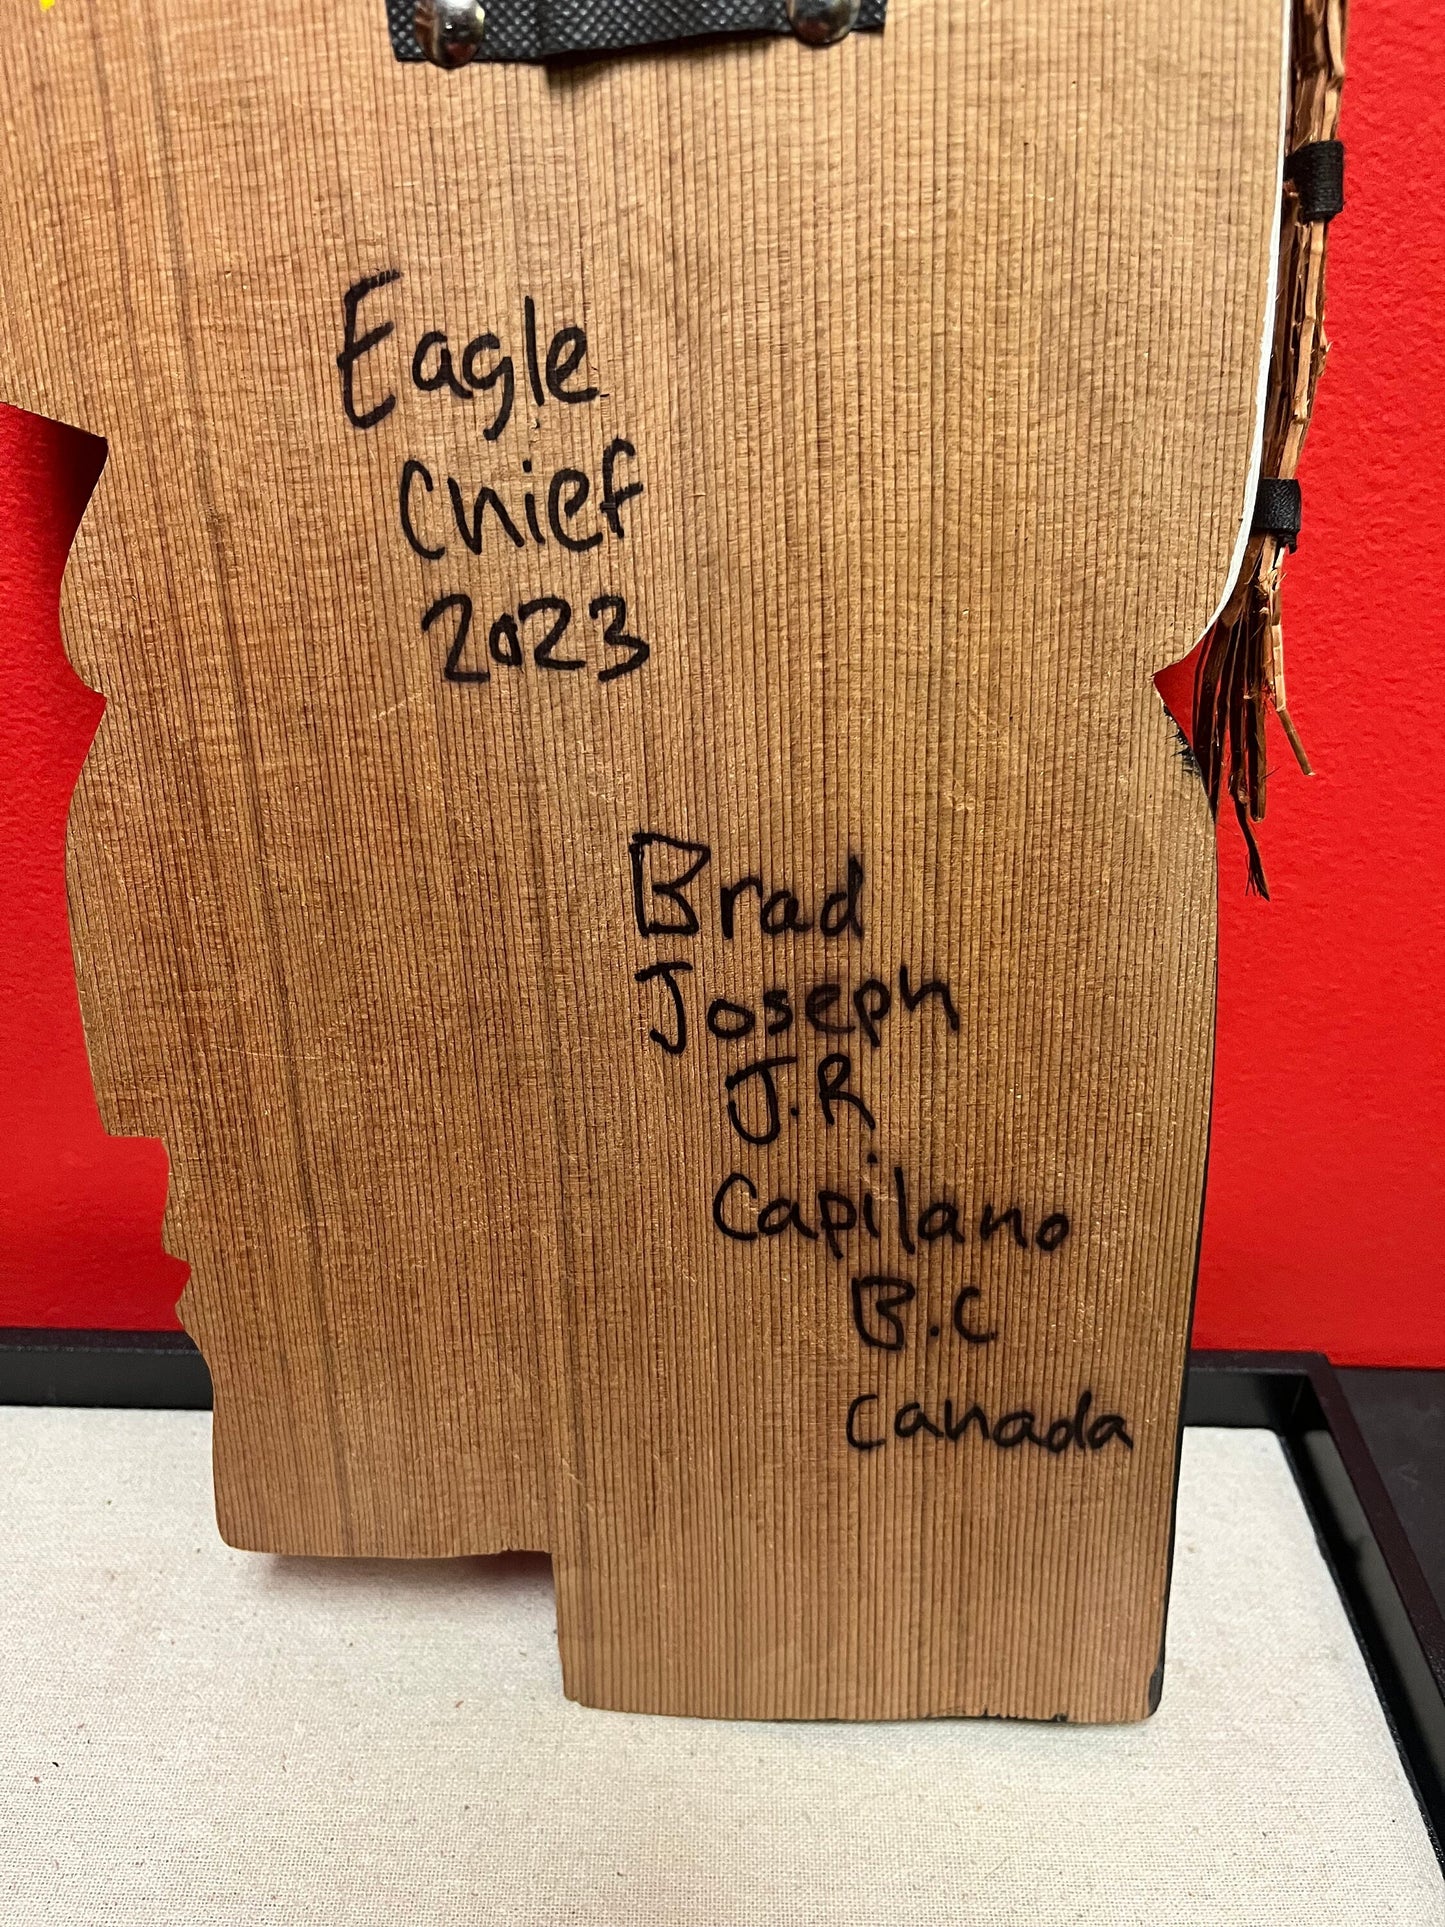 Eagle
Chief
2023
Brad
Joseph
J.R
Capilano
B.C
Canada